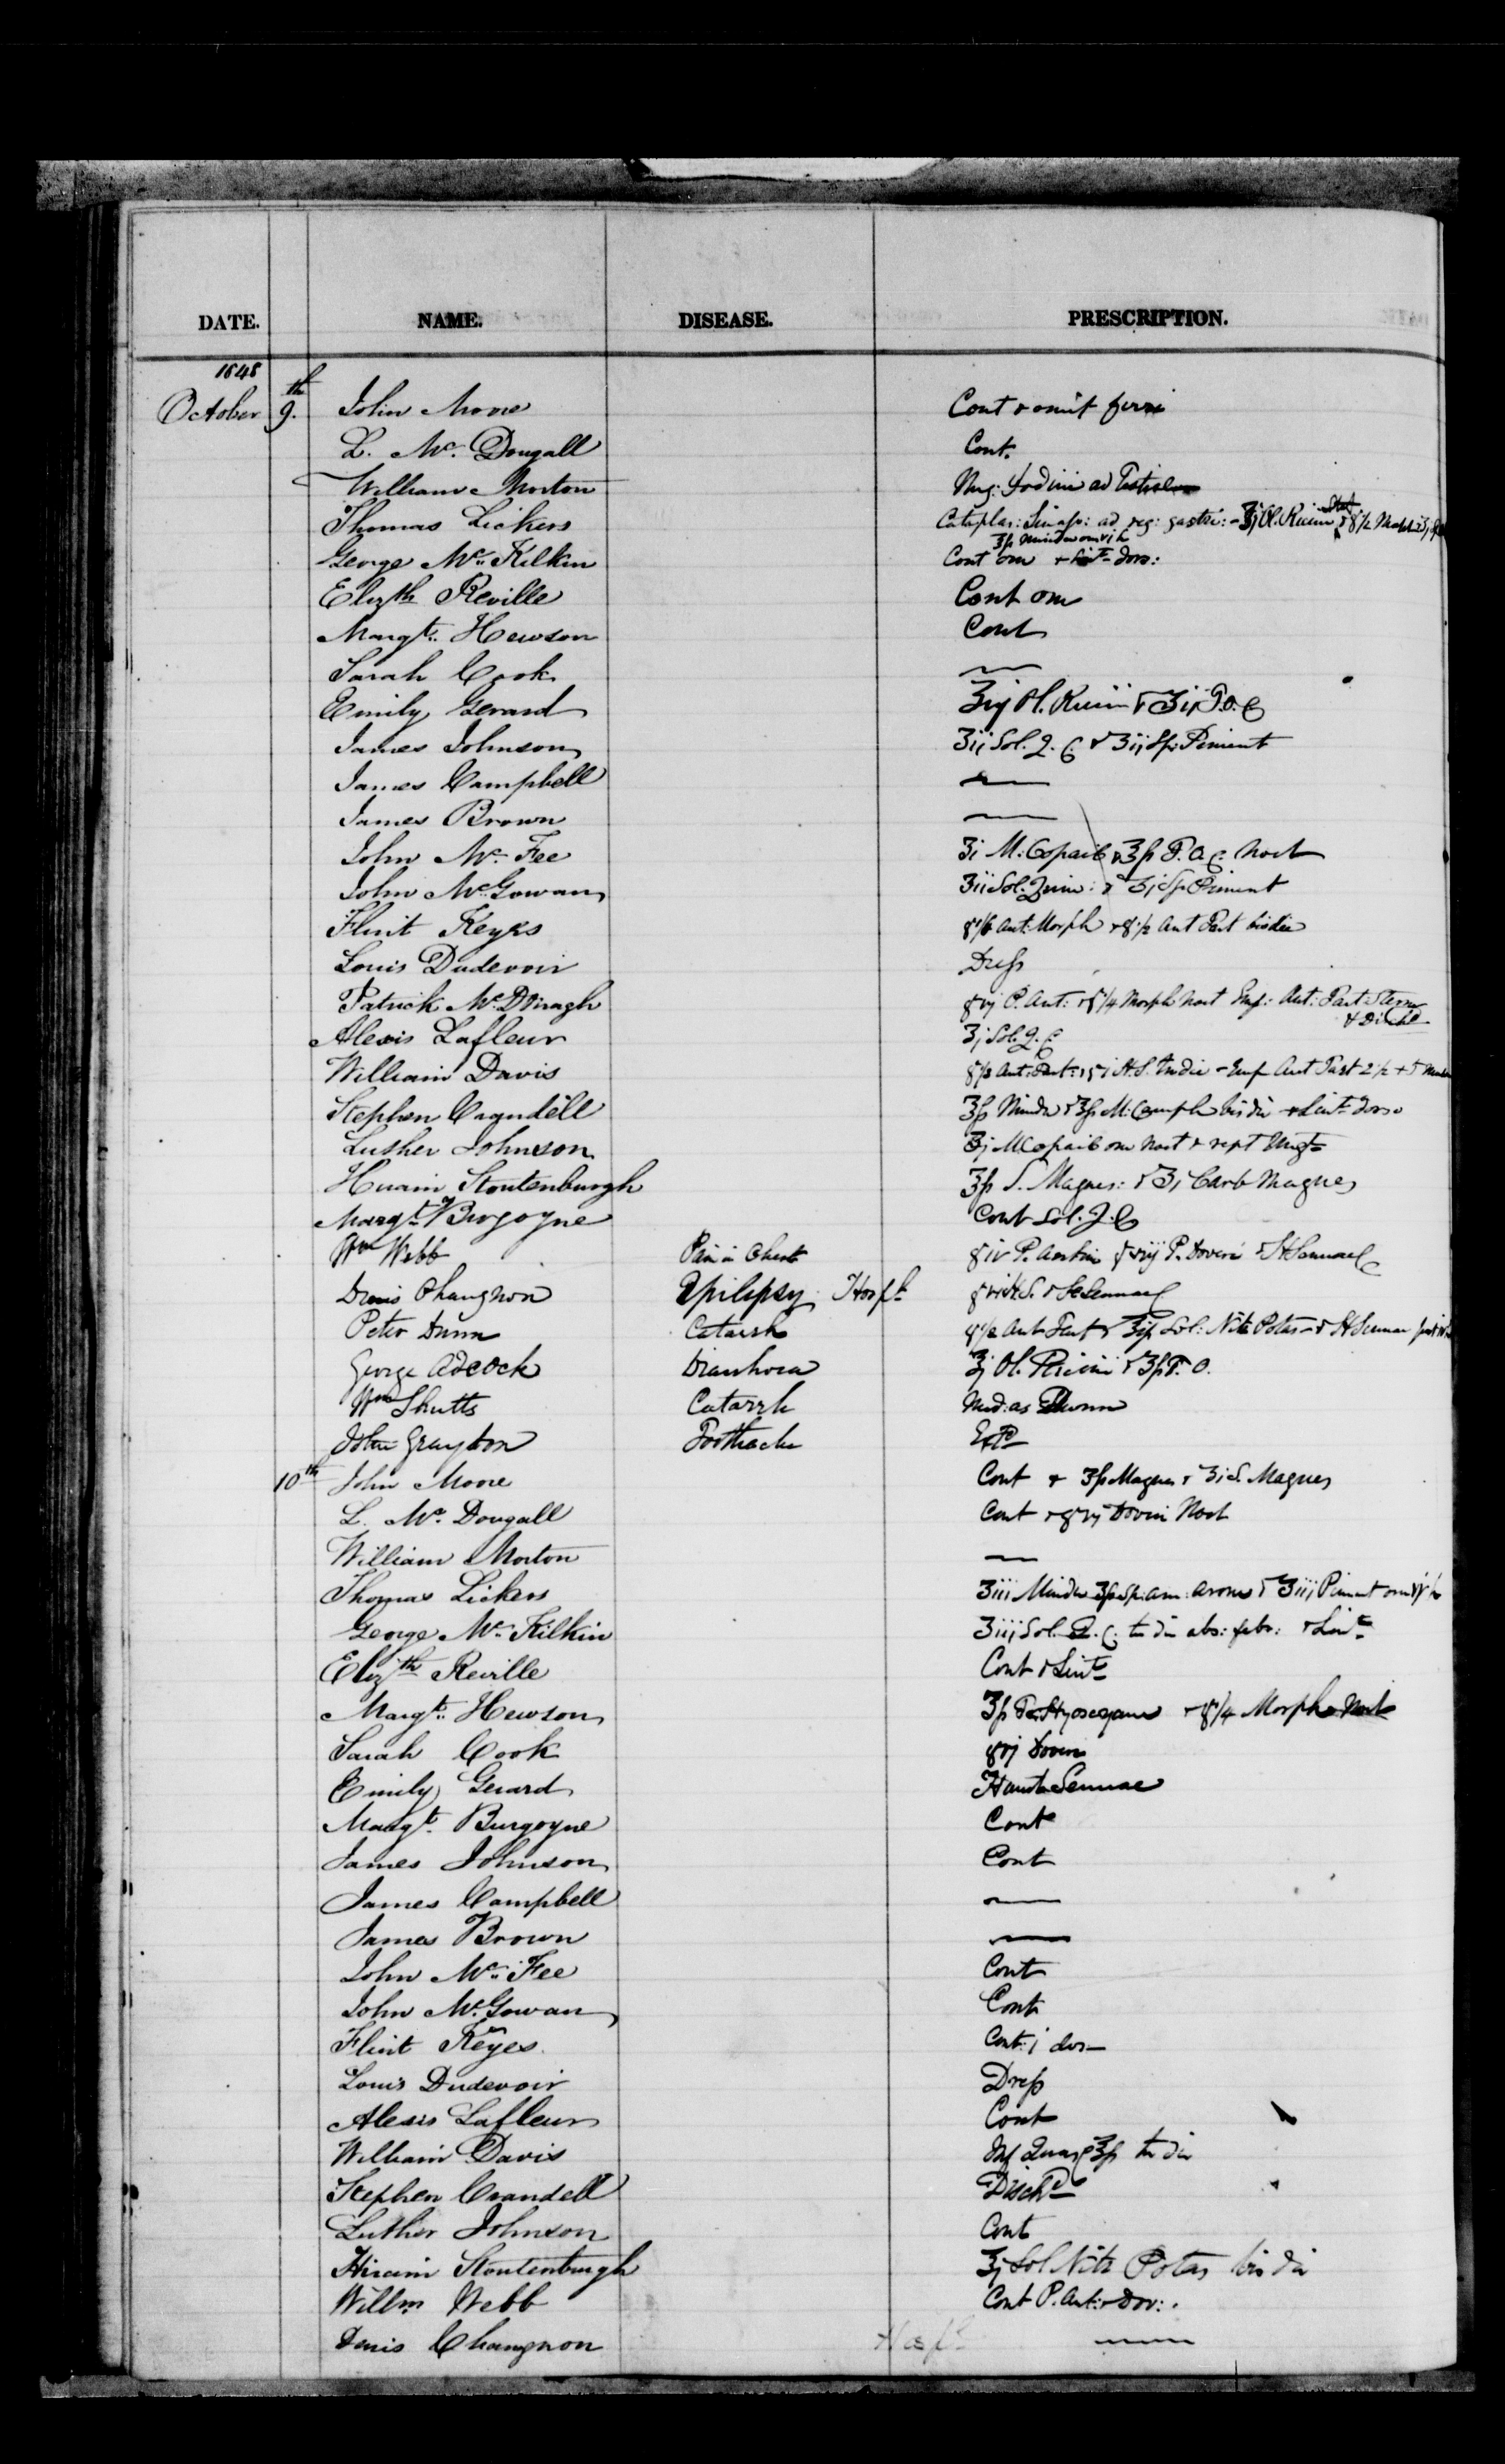 DATE. NAME. DISEASE. PRESCRIPTION.
1848
October 9.th John Moore Cont & omit ferri
L. Mc. Dougall Cont.
William Morton Ung: Iodini ad
Thomas Lickers Cataplas: Sinap: ad reg: gastri: - ʒj Ol. Ricini
George Mc. Kilkin Cont om & Lint- dors:
Elizth Reville Cont om
Margt. Hewson Cont
Sarah Cook —
Emily Gerard ʒij Ol. Ricini & ʒij T.O.C
James Johnson ʒij Sol. Q. C. & ʒij Sp: Piment
James Campbell —
James Brown —
John Mc. Fee ʒi M: Copaib & ʒß T. O C. Noct
John McGowan ʒii Sol. Quin: & ʒj Sp Piment
Flint Keyes gr 1/6 Ant: Morph & gr 1/2 Ant Tart bis die
Louis Dudevoir Dress
Patrick Mc. Donagh P. Ant: & gr 1/4 Morph Noct Emp: Ant: Tart: Sterno
& Dischd
Alexis Lafleur ʒj Sol. Q. C
William Davis gr 1/2 Ant: Tart: H.S. Emp Ant Tart
Stephen Crandell ʒß Minder & ʒß M: Camph bis die & Lint- dorso
Luther Johnson ʒj M Copaib om Noct & rept Ungt-
Hiram Stoutenburgh ʒß S. Magnes: & ʒi Carb Magnes
Margt. Burgoyne Cont Sol. Q. C
Wm Webb Pain in Chest gr iv P. Antim gr viij P. Doveri & H Sennae
Denis Changnon Epilepsy Hospl H.S. & H Sennae
Peter Dunn Catarrh gr 1/2 Ant Tart & Sol: Nitr Potas & H Sennae
George Adcock Diarrhoea ʒj Ol. Ricini & ʒß T. O.
Wm Shutts Catarrh Med: as Dunn
John Grayton Toothache Extd
10th John Moore Cont & ʒß Magnes & ʒi S. Magnes
L. Mc. Dougall Cont & gr vj Doveri Noct
William Morton —
Thomas Lickers ʒiii Minder ʒß Sp: am: arom & ʒiij Piment
George Mc. Kilkin ʒiij Sol. Q. C. ter die abs: febr: & Lint-
Elizth Reville Cont & Lint-
Margt. Hewson ʒß T. Hyoscyami & gr 1/4 Morph Noct
Sarah Cook gr vj Doveri
Emily Gerard Haust Sennae
Margt. Burgoyne Cont
James Johnson Cont
James Campbell —
James Brown —
John Mc. Fee Cont
John McGowan Cont
Flint Keyes Cont: j dos-
Louis Dudevoir Dress
Alexis Lafleur Cont
William Davis Inf Quass ʒß ter die
Stephen Crandell Dischd
Luther Johnson Cont
Hiram Stoutenburgh ʒj Sol Nitr Potas bis die
Willm Webb Cont P. Ant: & Dov:
Denis Changnon Hospl —